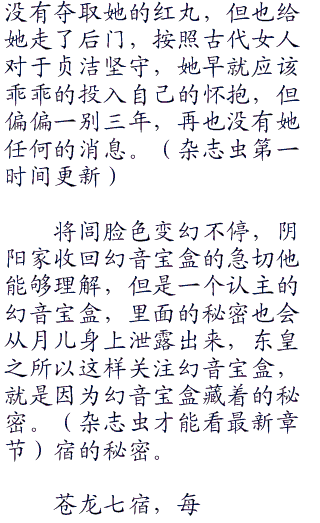 没有夺取她的红丸，但也给
她走了后门，按照古代女人
对于贞洁坚守，她早就应该
乖乖的投入自己的怀抱，但
偏偏一别三年，再也没有她
任何的消息。（杂志虫第一
时间更新）
将闾脸色变幻不停，阴
阳家收回幻音宝盒的急切他
能够理解，但是一个认主的
幻音宝盒，里面的秘密也会
从月儿身上泄露出来，东皇
之所以这样关注幻音宝盒，
就是因为幻音宝盒藏着的秘
密。（杂志虫才能看最新章
节）宿的秘密。
苍龙七宿，每